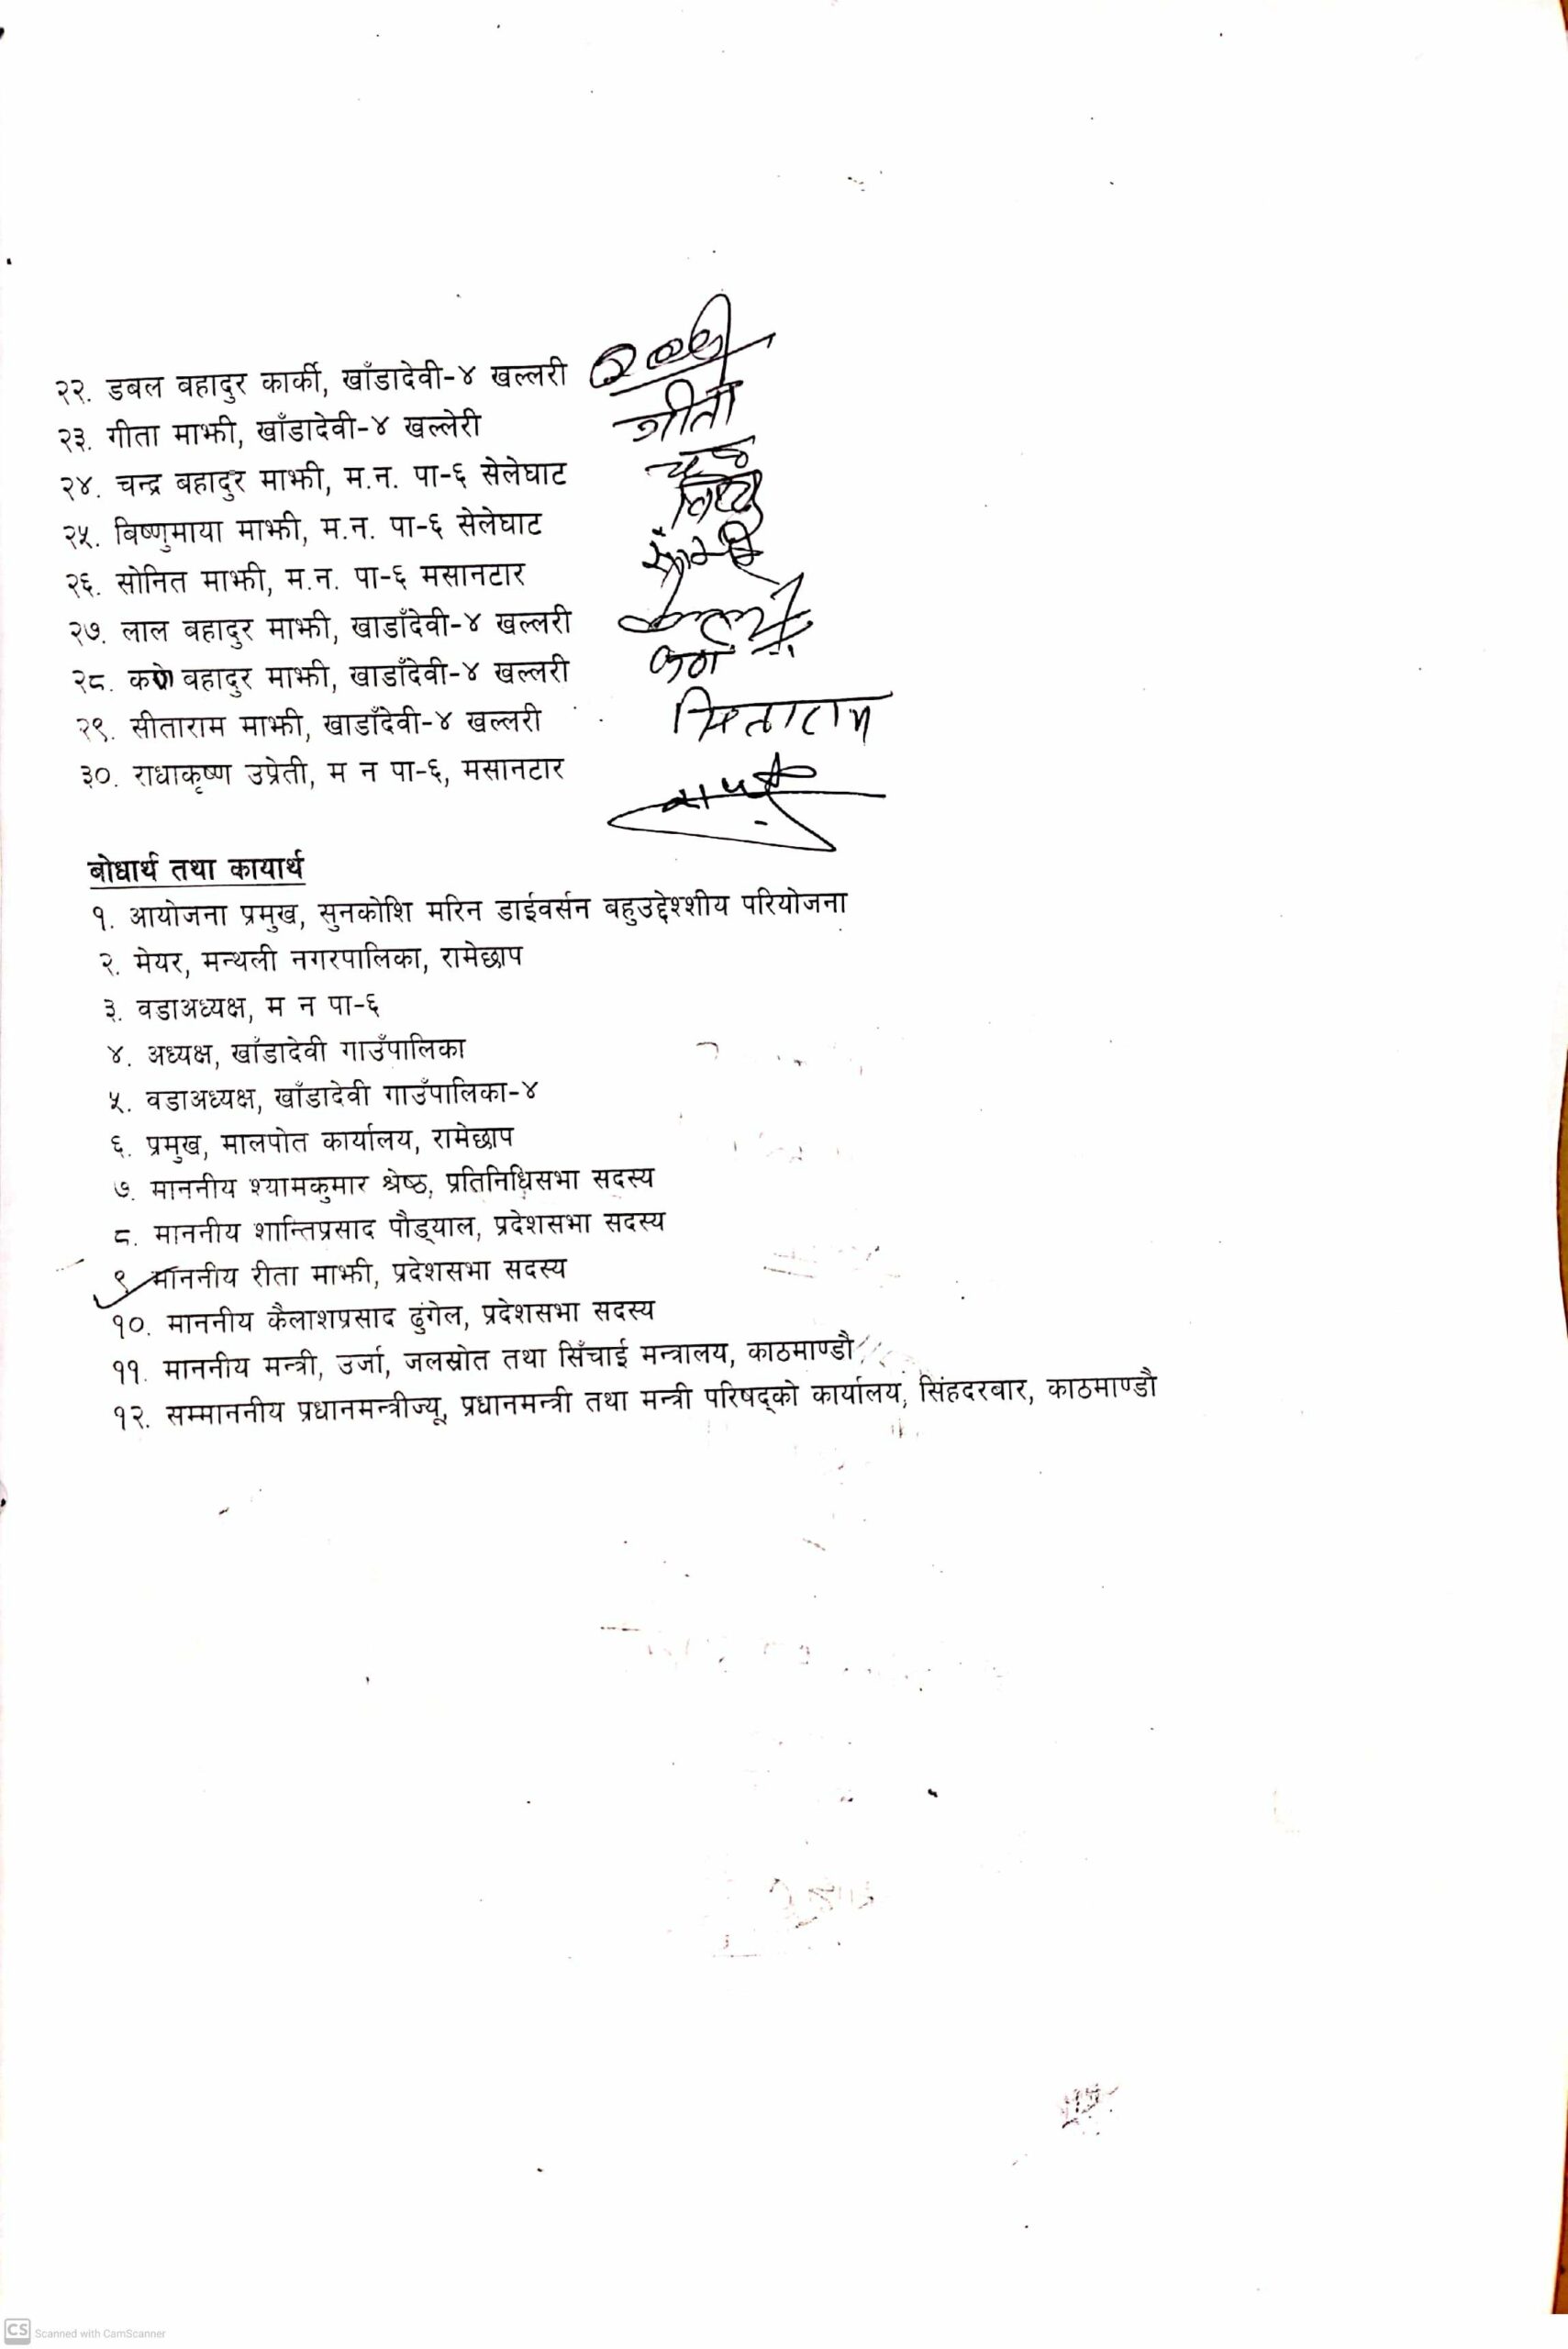 २२. डबल बहादुर कार्की, खाँडादेवी-४ खल्लरी
२३. गीता माझी, खाँडादेवी-४ खल्लेरी गीता
२४. चन्द्र बहादुर माझी, म.न. पा-६ सेलेघाट
२५. बिष्णुमाया माझी, म.न. पा-६ सेलेघाट
२६. सोनित माझी, म.न. पा-६ मसानटार
२७. लाल बहादुर माझी, खाडाँदेवी-४ खल्लरी
२८. बहादुर माझी, खाडाँदेवी-४ खल्लरी
२९. सीताराम माझी, खाडाँदेवी-४ खल्लरी
३०. राधाकृष्ण उप्रेती, म न पा-६, मसानटार
बोधार्थ तथा कायार्थ
१. आयोजना प्रमुख, सुनकोशि मरिन डाईवर्सन बहुउद्देश्शीय परियोजना
२. मेयर, मन्थली नगरपालिका, रामेछाप
३. वडाअध्यक्ष, म न पा-६
४. अध्यक्ष, खाँडादेवी गाउँपालिका
५. वडाअध्यक्ष, खाँडादेवी गाउँपालिका-४
६. प्रमुख, मालपोत कार्यालय, रामेछाप
७. माननीय श्यामकुमार श्रेष्ठ, प्रतिनिधिसभा सदस्य
८. माननीय शान्तिप्रसाद पौड्याल, प्रदेशसभा सदस्य
९ माननीय रीता माझी, प्रदेशसभा सदस्य
१०. माननीय कैलाशप्रसाद ढुंगेल, प्रदेशसभा सदस्य
११. माननीय मन्त्री, उर्जा, जलस्रोत तथा सिँचाई मन्त्रालय, काठमाण्डौ
१२. सम्माननीय प्रधानमन्त्रीज्यू, प्रधानमन्त्री तथा मन्त्री परिषद्को कार्यालय, सिंहदरबार, काठमाण्डौ
CS Scanned with CamScanner